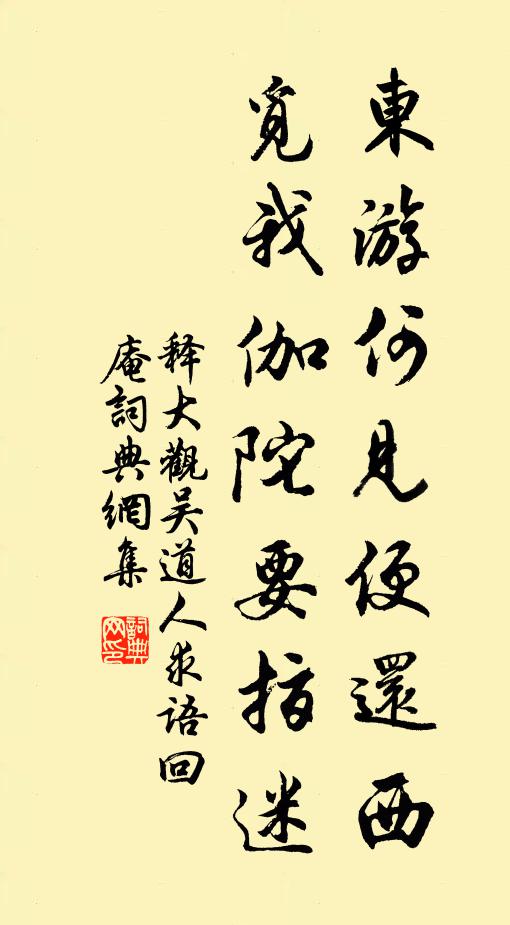 東游何見便還西
覓我伽陀要指迷
释大觀吴道人求语回
庵詞典網集
詞典网印